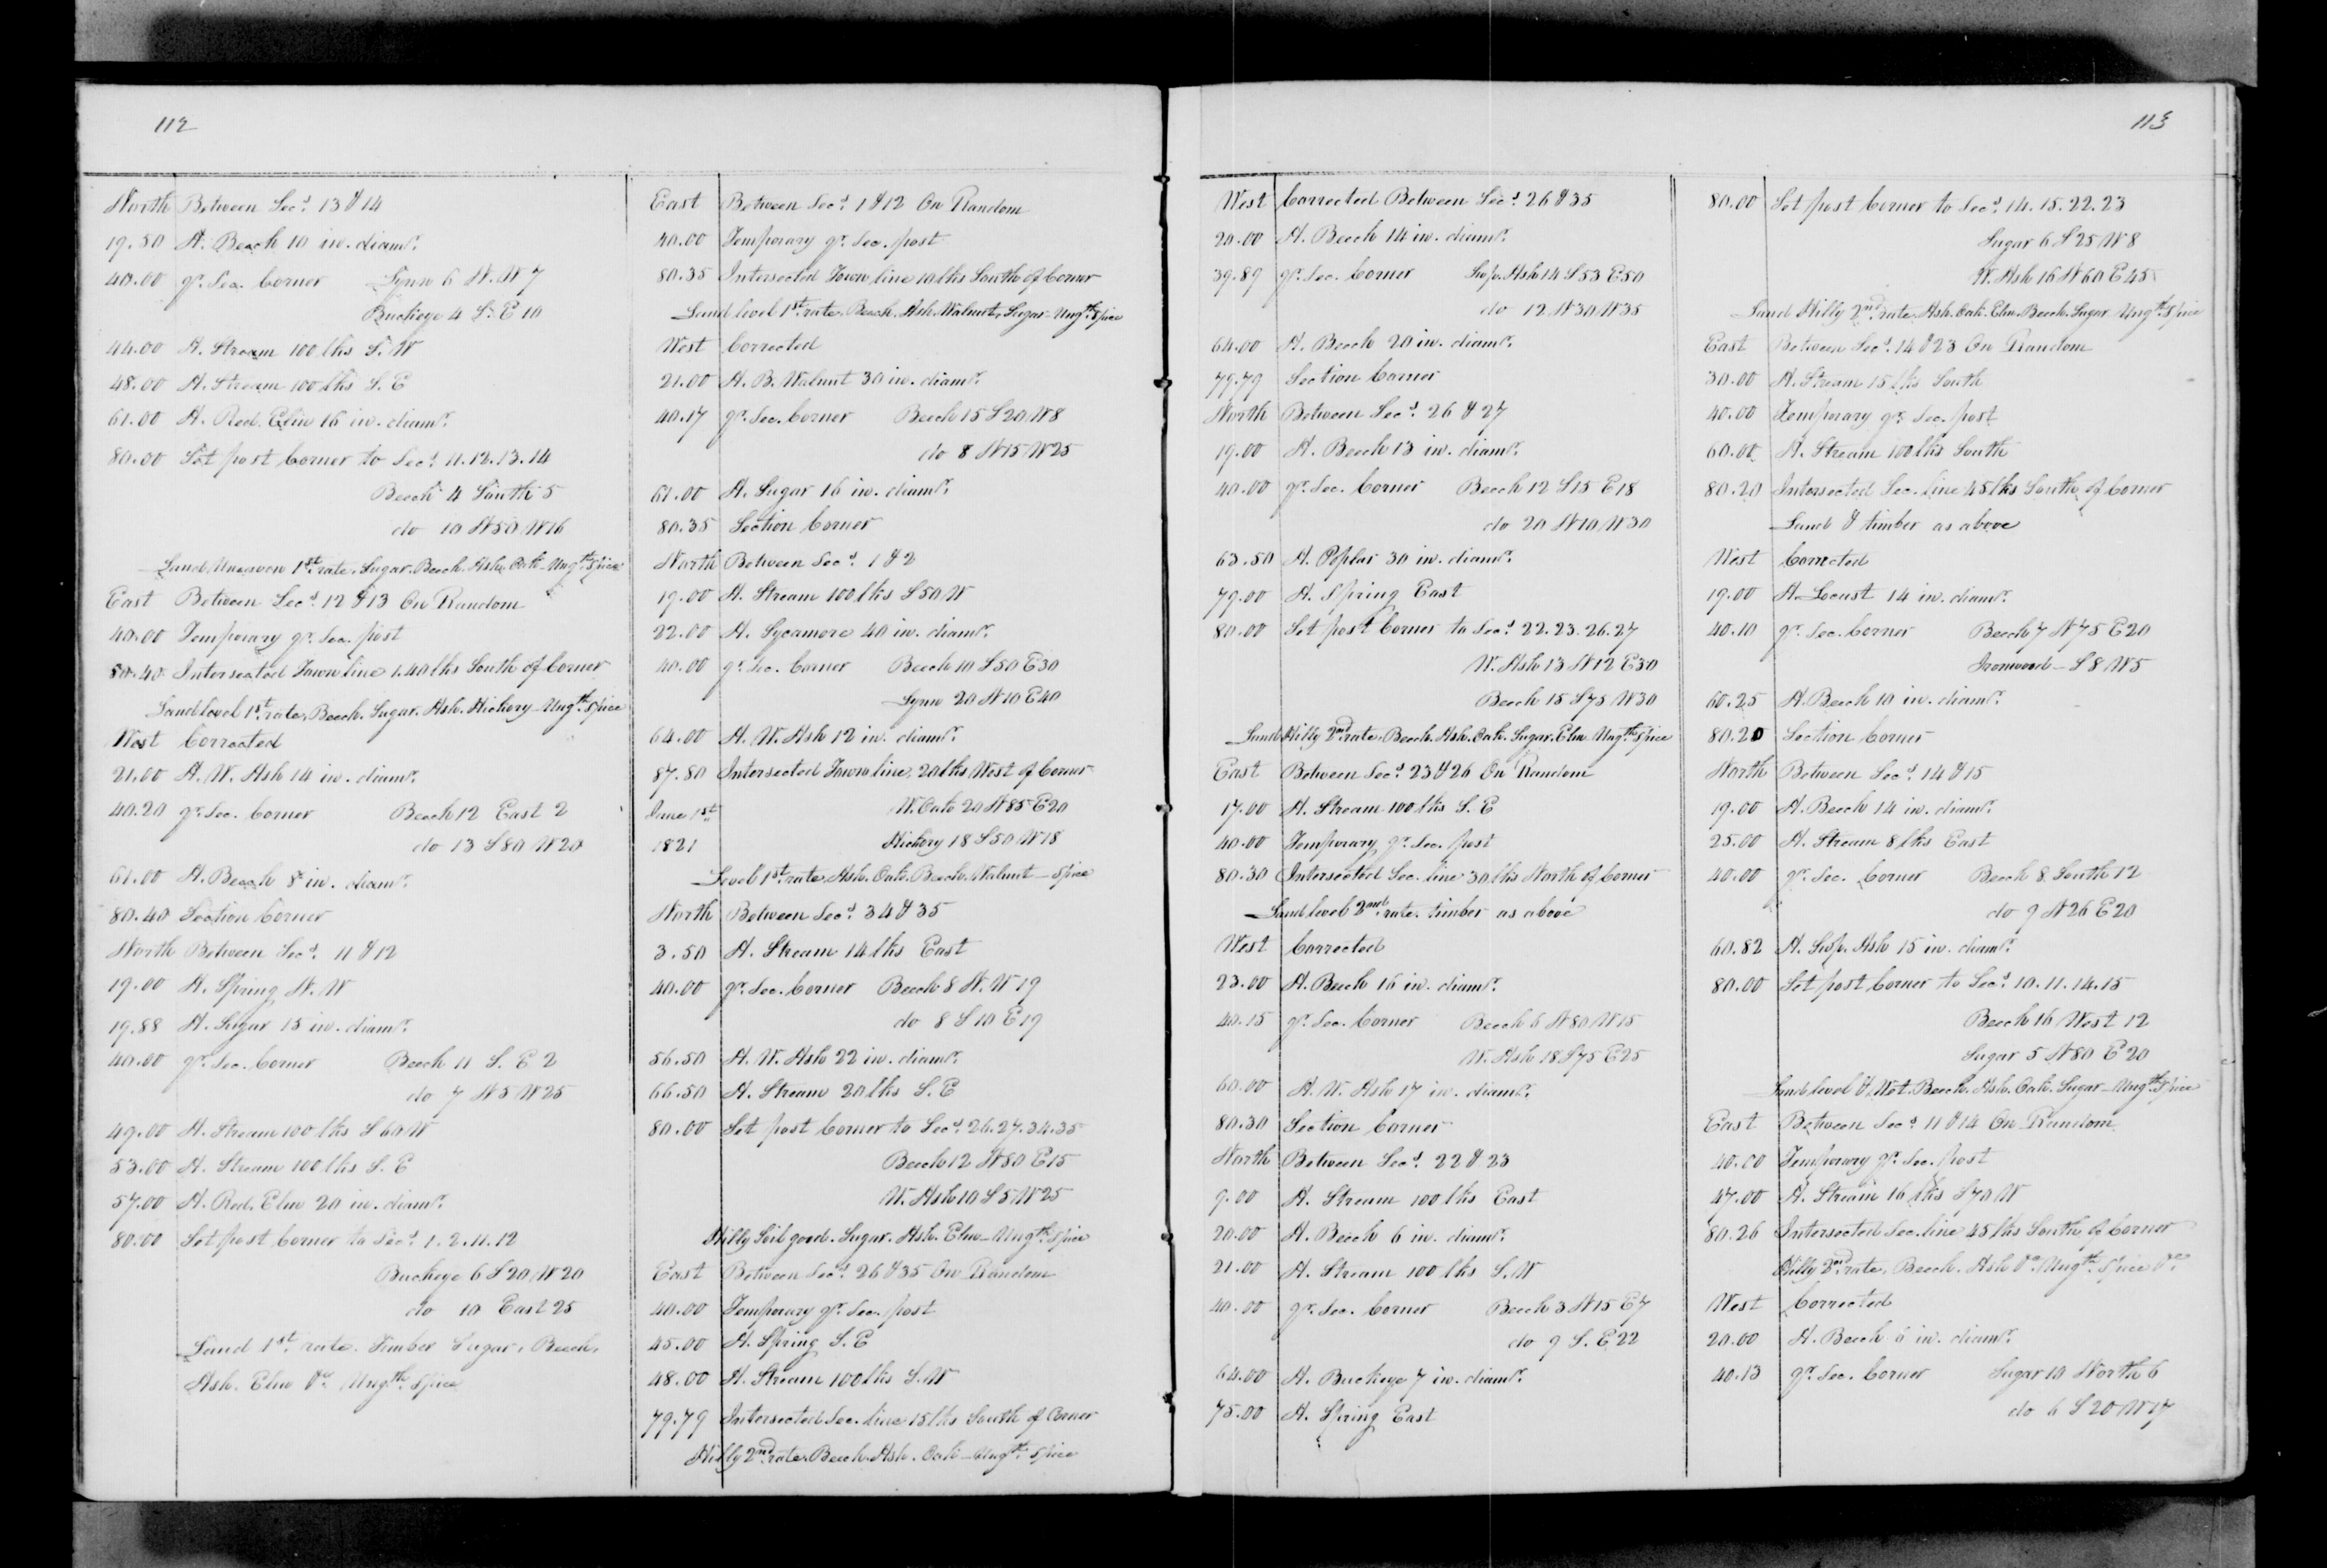 112
North Between Secs. 13 & 14
19.50 A. Beech 10 in. diamr.
40.00 qr. Sec. Corner Lynn 6 N.W 7
Buckeye 4 S.E 10
44.00 A. Stream 100 lks S.W
48.00 A. Stream 100 lks S.E
61.00 A. Red. Elm 16 in. diamr.
80.00 Set post Corner to Secs. 11.12.13.14
Beech 4 South 5
do 10 N50 W16
Land Uneaven 1st. rate. Sugar. Beech. Ash. Oak - Ungth. Spice
East Between Secs. 12 & 13 On Random
40.00 Temporary qr. Sec. post
80.40 Intersected Town line 1.40 lks South of Corner
Land level 1st. rate. Beech. Sugar. Ash. Hickory - Ungth. Spice
West Corrected
21.00 A. W. Ash 14 in. diamr.
40.20 qr. Sec. Corner Beech 12 East 2
do 13 S80 W20
61.00 A. Beech 8 in. diamr.
80.40 Section Corner
North Between Secs. 11 & 12
19.00 A. Spring N.W
19.88 A. Sugar 15 in. diamr.
40.00 qr. Sec. Corner Beech 11 S.E 2
do 7 N5 W25
49.00 A. Stream 100 lks S60W
53.00 A. Stream 100 lks S.E
57.00 A. Red. Elm 20 in. diamr.
80.00 Set post Corner to Secs. 1.2.11.12
Buckeye 6 S20 W20
do 10 East 25
Land 1st. rate. Timber Sugar, Beech,
Ash. Elm &c. Ungth. Spice
East Between Secs. 1 & 12 On Random
40.00 Temporary qr. Sec. post
80.35 Intersected Town line 10 lks South of Corner
Land level 1st. rate. Beech. Ash. Walnut. Sugar - Ungth. Spice
West Corrected
21.00 A. B. Walnut 30 in. diamr.
40.17 qr. Sec. Corner Beech 15 S20 W8
do 8 N15 W25
61.00 A. Sugar 16 in. diamr.
80.35 Section Corner
North Between Secs. 1 & 2
19.00 A. Stream 100 lks S50W
22.00 A. Sycamore 40 in. diamr.
40.00 qr. Sec. Corner Beech 10 S50 E30
Lynn 20 N10 E40
64.00 A. W. Ash 12 in. diamr.
87.80 Intersected Town line. 20 lks West of Corner
June 1st W. Oak 20 N85 E20
1821 Hickory 18 S50 W18
Level 1st. rate. Ash. Oak. Beech. Walnut - Spice
North Between Secs. 34 & 35
3.50 A. Stream 14 lks East
40.00 qr. Sec. Corner Beech 8 N.W 19
do 8 S10 E19
56.50 A. W. Ash 22 in. diamr.
66.50 A. Stream 20 lks S.E
80.00 Set post Corner to Secs. 26.27.34.35
Beech 12 N80 E15
W. Ash 10 S5 W25
Hilly Soil good. Sugar. Ash. Elm - Ungth. Spice
East Between Secs. 26 & 35 On Random
40.00 Temporary qr. Sec. post
45.00 A. Spring S.E
48.00 A. Stream 100 lks S.W
79.79 Intersected Sec. line 15 lks South of Corner
Hilly 2nd. rate. Beech. Ash. Oak - Ungth. Spice
113
West Corrected Between Secs. 26 & 35
20.00 A. Beech 14 in. diamr.
39.89 qr. Sec. Corner Hop. Ash 14 S53 E50
do 12 N30 W35
64.00 A. Beech 20 in. diamr.
79.79 Section Corner
North Between Secs. 26 & 27
19.00 A. Beech 13 in. diamr.
40.00 qr. Sec. Corner Beech 12 S15 E18
do 20 N10 W30
63.50 A. Poplar 30 in. diamr.
79.00 A. Spring East
80.00 Set post Corner to Secs. 22.23.26.27
W. Ash 13 N12 E30
Beech 15 S75 W30
Land Hilly 2nd. rate. Beech. Ash. Oak. Sugar. Elm Ungth. Spice
East Between Secs. 23 & 26 On Random
17.00 A. Stream 100 lks S.E
40.00 Temporary qr. Sec. post
80.30 Intersected Sec. line 30 lks North of Corner
Land level 2nd. rate. timber as above
West Corrected
23.00 A. Beech 16 in. diamr.
40.15 qr. Sec. Corner Beech 6 N80 W15
W. Ash 18 S75 E25
60.00 A. W. Ash 17 in. diamr.
80.30 Section Corner
North Between Secs. 22 & 23
9.00 A. Stream 100 lks East
20.00 A. Beech 6 in. diamr.
21.00 A. Stream 100 lks S.W
40.00 qr. Sec. Corner Beech 3 N15 E7
do 9 S.E 22
64.00 A. Buckeye 7 in. diamr.
75.00 A. Spring East
80.00 Set post Corner to Secs. 14.15.22.23
Sugar 6 S25 W8
W. Ash 16 N60 E45
Land Hilly 2nd. rate. Ash. Oak. Elm. Beech. Sugar Ungth. Spice
East Between Secs. 14 & 23 On Random
30.00 A. Stream 15 lks South
40.00 Temporary qr. Sec. post
60.00 A. Stream 100 lks South
80.20 Intersected Sec. line 45 lks South of Corner
Land & timber as above
West Corrected
19.00 A. Locust 14 in. diamr.
40.10 qr. Sec. Corner Beech 7 N75 E20
Ironwood - S8 W5
60.25 A. Beech 10 in. diamr.
80.20 Section Corner
North Between Secs. 14 & 15
19.00 A. Beech 14 in. diamr.
25.00 A. Stream 8 lks East
40.00 qr. Sec. Corner Beech 8 South 12
do 9 N26 E20
60.82 A. Hop. Ash 15 in. diamr.
80.00 Set post Corner to Secs. 10.11.14.15
Beech 16 West 12
Sugar 5 N80 E20
Land level & Wet. Beech. Ash. Oak. Sugar - Ungth. Spice
East Between Secs. 11 & 14 On Random
40.00 Temporary qr. Sec. post
47.00 A. Stream 16 lks S70W
80.26 Intersected Sec. line 45 lks South of Corner
Hilly 2nd. rate. Beech. Ash &c. Ungth. Spice &c
West Corrected
20.00 A. Beech 6 in. diamr.
40.13 qr. Sec. Corner Sugar 10 North 6
do 6 S20 W17